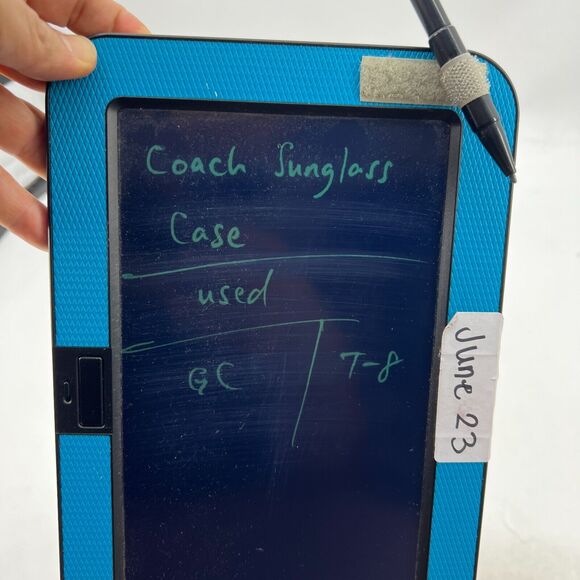 Coach Sunglass
Case
used
GC
T-8
June 23